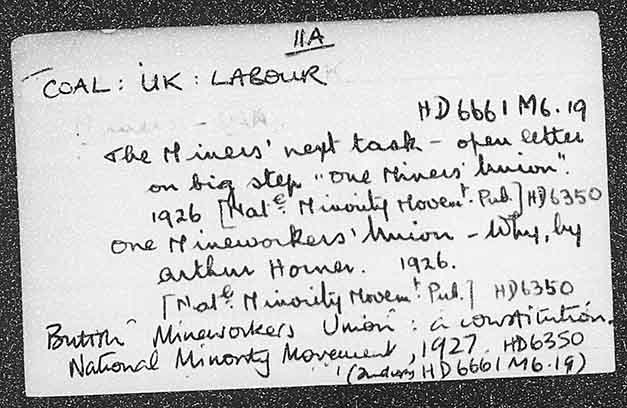 11A
COAL : UK : LABOUR
HD6661 M6.19
The Miners' next task - open letter
on big step "One Miners' Union".
1926 [Natl. Minority Movemt. Pub.] HD6350
One Mineworkers' Union - Why, by
Arthur Horner. 1926.
[Natl. Minority Movemt. Pub.] HD6350
British Mineworkers Union : a constitution.
National Minority Movement, 1927. HD6350
HD6661 M6.19)